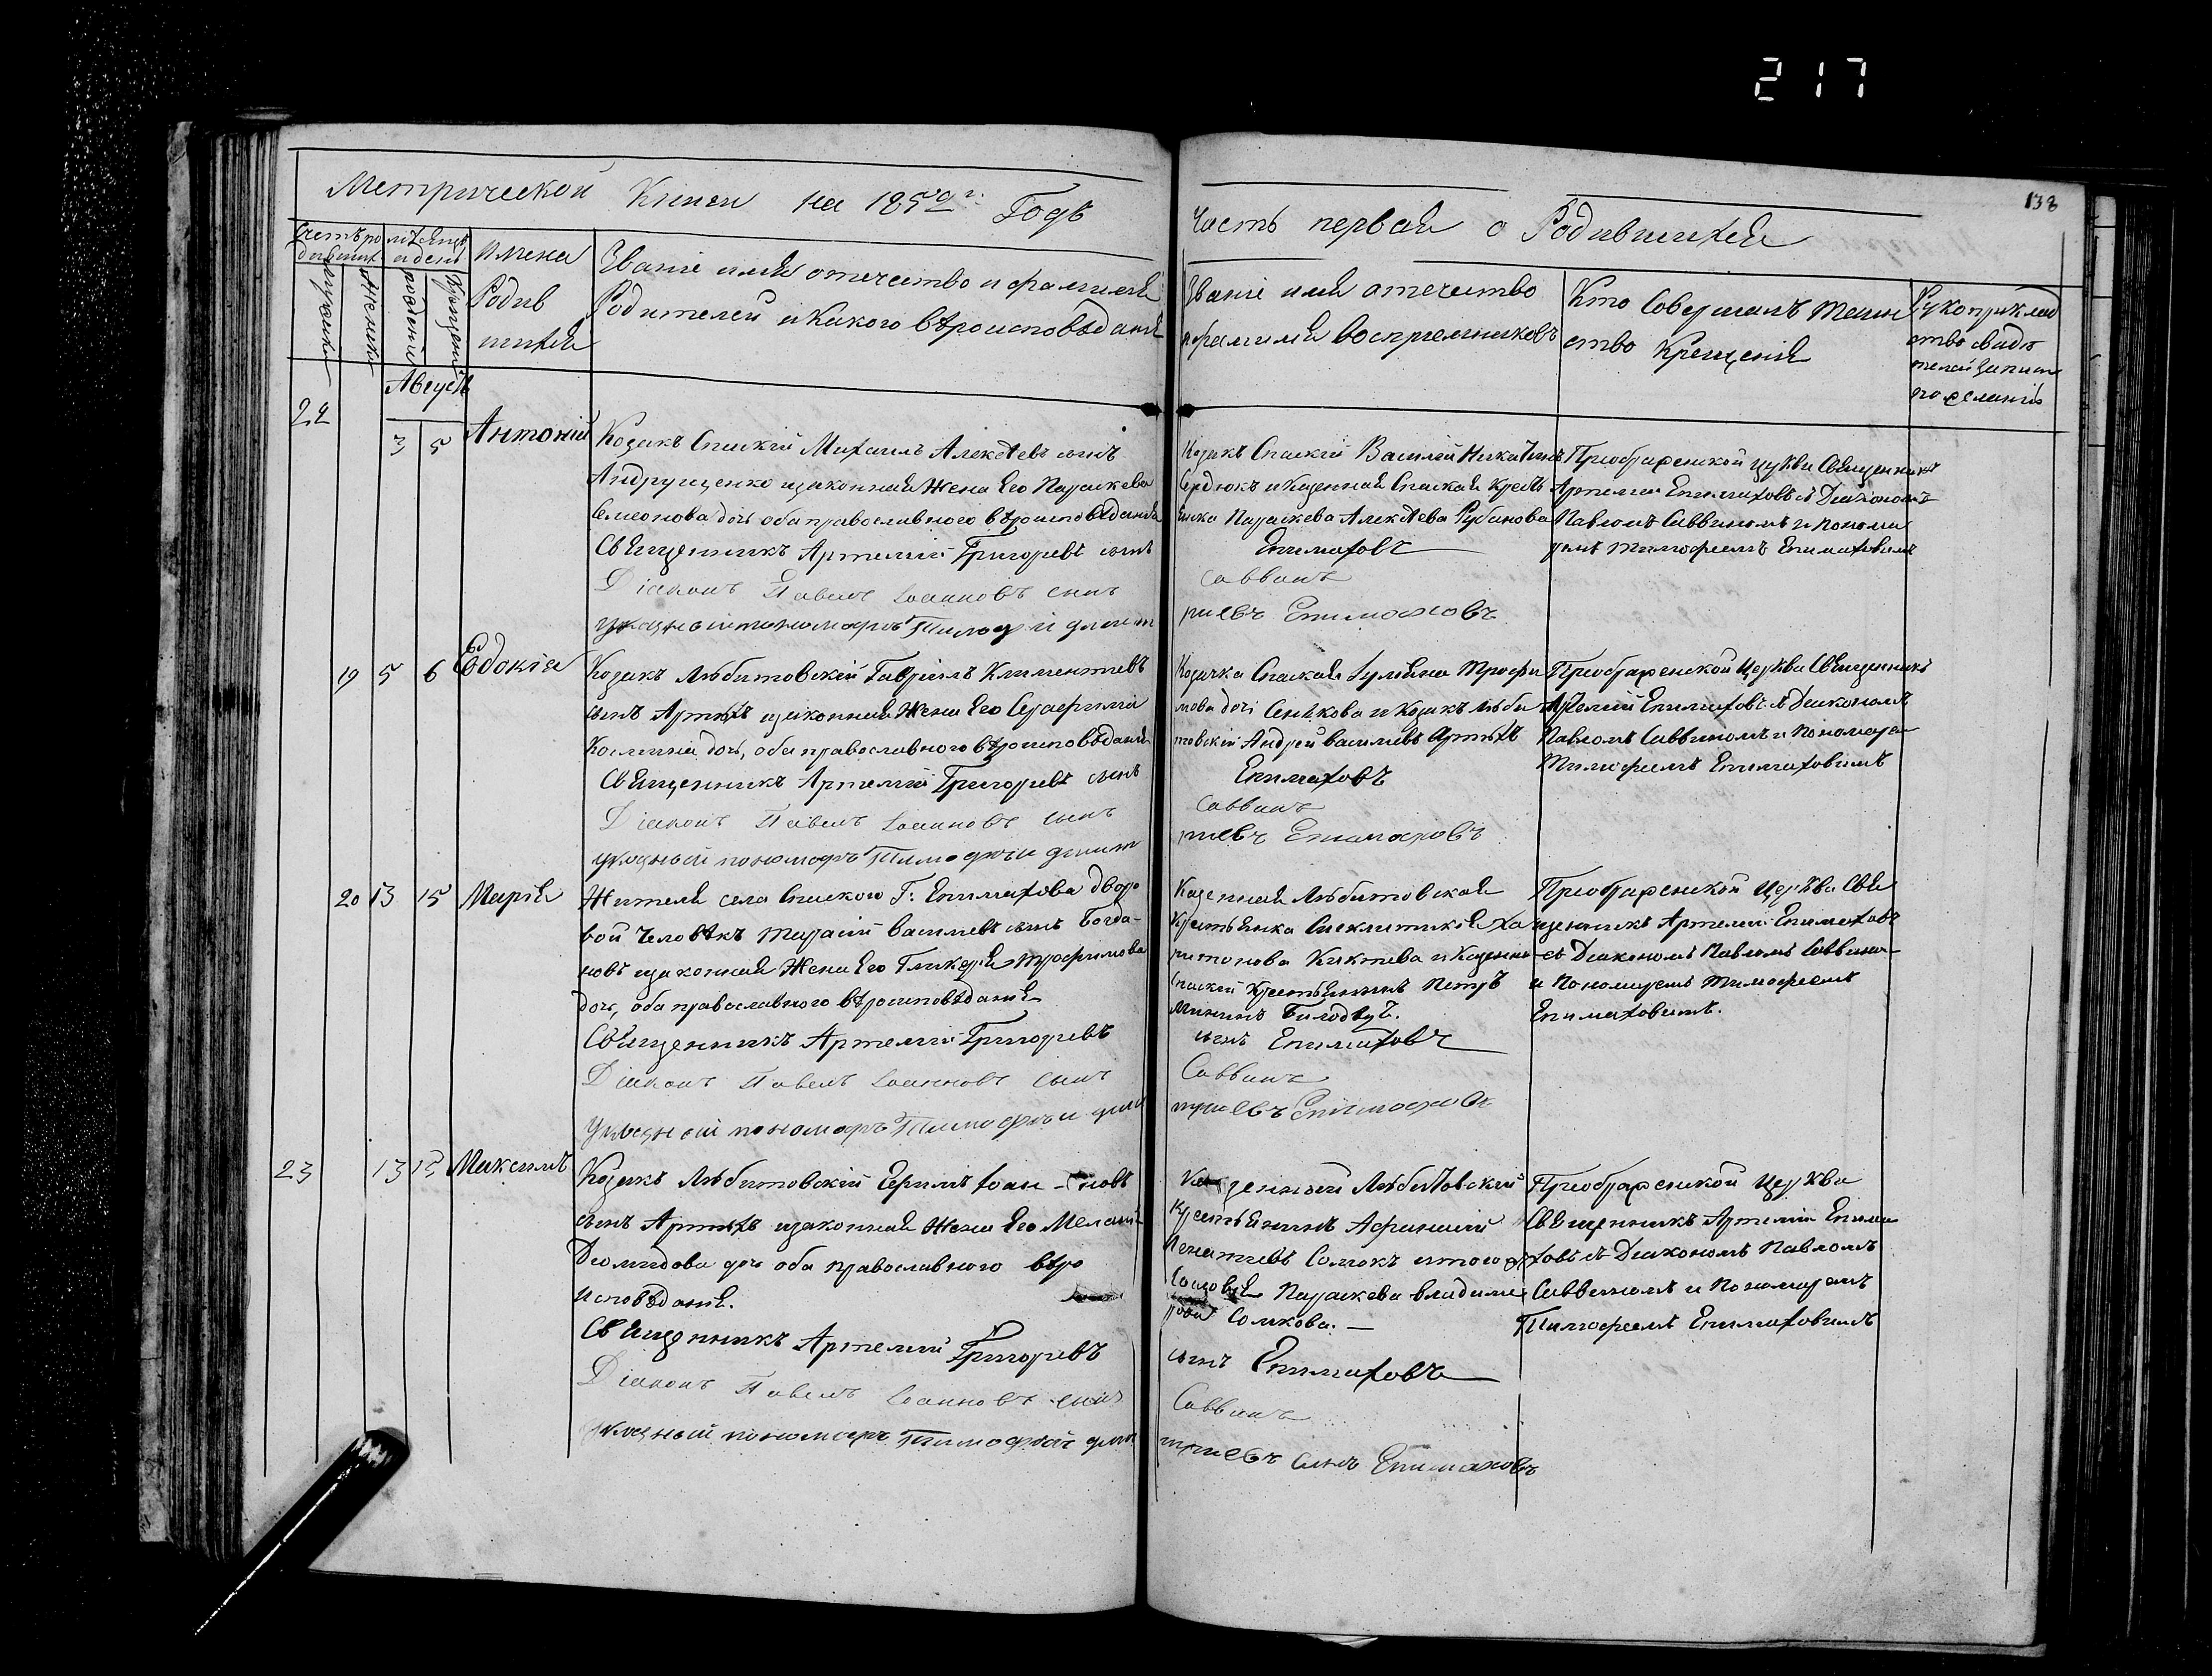 217
138
Метрической Книги на 185 Годъ
Часть первая о Родившихся
Счетъ ро
дившихъ
мѣсяцъ
и день
Имена
Родив
шихся
Званіе имя отечество и фамилія
Родителей и какого вѣроисповѣданія
Званіе имя отечество
и фамилия воспріемниковъ
Кто Совершалъ таин
ство Крещенія
Рукоприклад
ство свидѣ
телей записи
по желанію
мужска
женска
рожденія
Крещенія
Августъ
22
3 5 Антоній
Козакъ Спаскій Михаилъ Алексѣевъ сынъ
Андрущенко и законная Жена Его Параскева
Семеонова дочь оба православного вѣроисповѣданія
Священникъ Артемій Григорьевъ сынъ
Діаконъ Павелъ Іоанновъ сынъ
Указный пономаръ Тимофей
Козакъ Спаскій Василій Никитинъ
Сердюкъ и Казенная Спаская Кресть
янка Параскева Алексѣева Рубанова
Епимаховъ
Саввинъ
риевъ Епимаховъ
Преображенской церкви Священникъ
Артемій Епимаховъ съ Діакономъ
Павломъ Саввиномъ и понома
ремъ Тимофеемъ Епимаховимъ
19 5 6 Евдокія
Козакъ Любитовскій Гавріилъ Климентіевъ
сынъ Артюхъ и законная Жена Его Серафима
Космина дочь, оба православного вѣроисповѣданія
Священникъ Артемій Григорьевъ сынъ
Діаконъ Павелъ Іоанновъ сынъ
указный пономаръ Тимофей
Козачка Спаская Іулияна Трофи
мова дочь Сенкова и Козакъ Люби
товскій Андрей Васильевъ Артюхъ
Епимаховъ
Саввинъ
риевъ Епимаховъ
Преображенской Церкви Священникъ
Артемій Епимаховъ съ Діакономъ
Павломъ Саввиномъ и Пономарем
Тимофеемъ Епимаховимъ
20 13 15 Марія
Жителя села Спаского Г: Епимахова дворо
вой человѣкъ Тарасій Васильевъ сынъ Богда-
новъ и законная Жена Его Гликерія Трофимова
дочь, оба православного вѣроисповѣданія
Священникъ Артемій Григорьевъ
Діаконъ Павелъ Іоанновъ сынъ
Указный пономаръ Тимофей
Казенная Любитовская
Крестьянка Синклитикія Ха
ритонова Киктева и Казенний
Спаскій Крестьянинъ Петръ
Мининъ
сынъ Епимаховъ
Саввинъ
триевъ Епимаховъ
Преображенской Церкви Свя
щенникъ Артемій Епимаховъ
съ Діакономъ Павломъ Саввино
и Пономаремъ Тимофеемъ
Епимаховимъ.
23 13 15 Максимъ
Козакъ Любитовскій Ефимъ Іоан - новъ
сынъ Артюхъ и законная Жена Его Меланія
Диомидова дчь оба православного вѣро
исповѣданія.
Священникъ Артемій Григорьевъ
Діаконъ Павелъ Іоанновъ сынъ
указный пономаръ Тимофей
Казенный Любитовский
Крестьянинъ Афанасій
Игнатіевъ Сомокъ и того
сословія Параскева Владими
рова Сомкова. —
сынъ Епимаховъ
Саввинъ
триевъ сынъ Епимаховъ
Преображенской Церкви
Священникъ Артемій Епима
ховъ съ Діакономъ Павломъ
Саввиномъ и Пономаремъ
Тимофеемъ Епимаховимъ